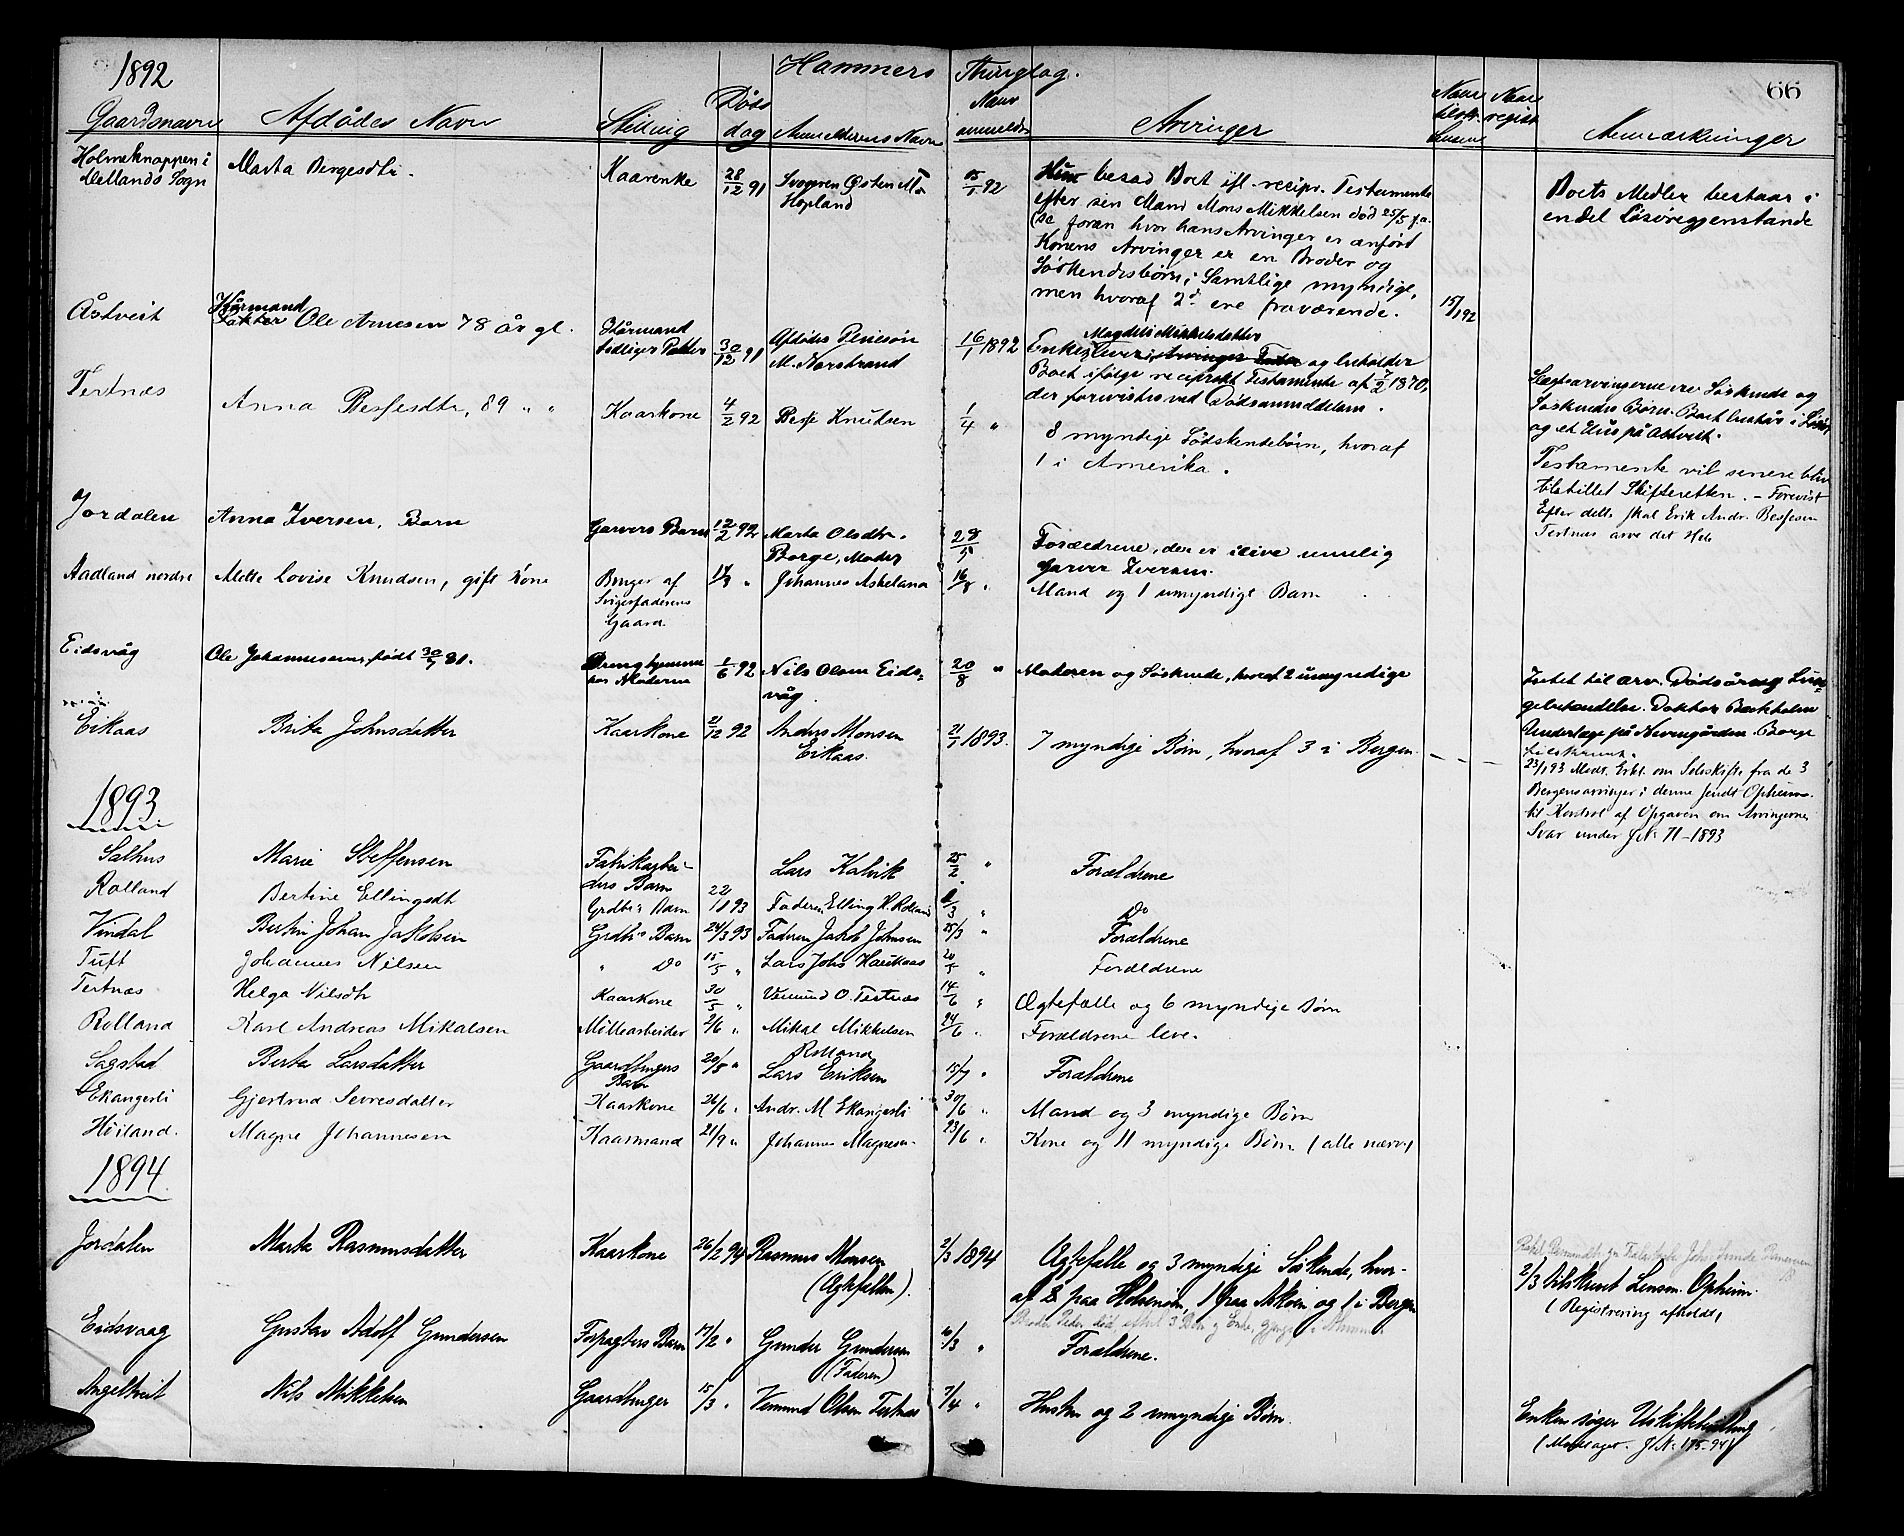 1892
Hammers Thinglag.
66
Gaardsnavn Afdødes Navn Stilling Døds dag Anmelderens Navn Naar anmeldt Arvinger Naar Naar regist Anmærkninger
Holmeknappen i Mellands Sogn Marta Bergesdtr. Kaarenke 28/12 91 Svogeren Østen Hopland 15/1 92
Hun besad Boet ifl. recipr. Testamente
efter sin Mand Mons Mikkelsen død 25/5 f.a.
(se foran hvor hans Arvinger er anført
Konens Arvinger er en Broder og
Søskendebørn, Samtlige myndige,
men hvoraf 2de ere fraværende. 15/1 92
Boets Medler bestaar i
endel Løsøregjenstande
Åstveit Kårmand Ole Arnesen 78 år gl. Kårmand tidligere 30/12 91 Afdødes M. Norstrand 16/1 1892
Enken Magdeli Mikkelsdatter lever og beholder
Boet ifølge reciprokt Testamente af 7/2 1870,
der forevistes ved Dødsanmeldelsen.
Legtsarvingerne ere Søskende og
Søskendes Børn. Boet består i
og et Hus på Åstveit.
Tertnæs Anna Besfesdtr, 89 " " Kaarkone 4/2 92 Besfe Knudsen 1/4 "
8 myndige Sødskendebørn, hvoraf
1 i Amerika.
Testamente vil senere blive
tilstillet Skifteretten. - Forevist
Efter dette skal Erik Andr. Besfesen
Tertnæs arve det Hele
Jordalen Anna Iversen, Barn Garvers Barn 12/2 92 Marta Olsdtr. Borge, Moder 28/5
Forældrene, der er ilive nemlig
garver Iversen.
Aadland nordre Mette Lovise Knudsen, gift Kone Bruger af Svigerfaderens Gaard " Johannes Askeland 16/8 "
Mand og 1 umyndigt Barn
Eidsvåg Ole Johannessen, født 81. hos Moderen 1/6 92 Nils Olsen Eidsvåg 20/8 "
Moderen og Søskende, hvoraf 2 umyndige
Intet til arv.
Eikaas Brita Johnsdatter Kaarkone 2/12 92 Anders Monsen Eikaas 21/1 1893.
7 myndige Børn, hvoraf 3 i Bergen
23/1 93 Modt. Erkl. om Selvskifte fra de 3
Bergensarvinger; denne sendt Opheim
til Kontrol af Opgaven om Arvingerne
Svar under J.N. 71-1893
1893
Salhus Marie Steffensen Fabrikarbeiders Barn Lars Kalvik 25/2 " Forældrene
Rolland Bertine Ellingsdt Grdbr's Barn 22/1 93 Faderen Elling H. Rolland /3 " Do
Vindal Bertin Johan Jakobsen Grdbr's Barn 24/3 93 Faderen Jakob Johnsen 25/3 " Forældrene
Tuft Johannes Nilsen " Do 15/5 " Lars Johs Haukaas 20/5 " Forældrene
Tertnæs Helga Nilsdtr Kaarkone 30/5 " Vemund O. Tertnæs 14/6 " Ægtefælle og 6 myndige Børn
Rolland Karl Andreas Mikalsen Möllearbeider 2/6 " Mikal Mikkelsen Rolland 24/6 " Forældrene leve.
Sagstad Berta Larsdatter Gaardbrugers Barn 20/5 " Lars Eriksen 15/7 " Forældrene
Ekangerli Gjertrud Sevresdatter Kaarkone 26/6 " Andr. M Ekangerli 30/6 " Mand og 3 myndige Børn
Höiland. Magne Johannesen Kaarmand 21/9 " Johannes Magnesen 23/6 " Kone og 11 myndige Børn (alle nærv.)
1894
Jordalen Marta Rasmusdatter Kaarkone 26/2 94 Rasmus Monsen (Ægtefællen). 2/3 1894
Ægtefælle og 3 myndige Söskende, hvor-
af 2 paa Holsenöen, 1 paa Asköen og 1 i Bergen
2/3 tilskrevet Lensm. Opheim.
(Registrering afholdt)
Eidsvaag Gustav Adolf Gundersen Forpagters Barn 17/2 " Gunder Gundersen (Faderen) 10/3 " Forældrene.
Angeltveit Nils Mikkelsen Gaardbruger 15/3 " Vemund Olsen Tertnæs 7/4 " Hustru og 2 umyndige Børn.
Enken søger Uskiftebevilling
(Modtaget. J.N. 195-94)